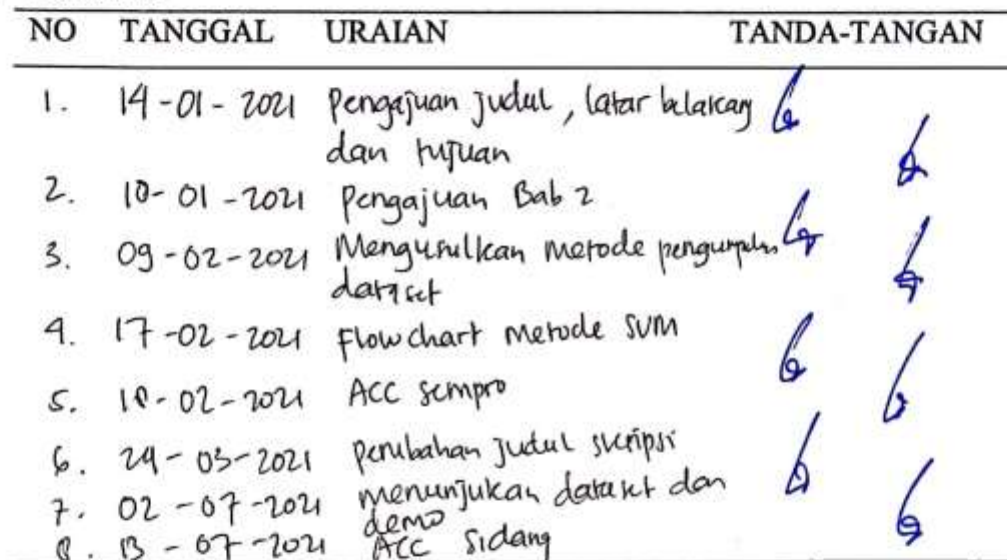 NO TANGGAL URAIAN TANDA-TANGAN
1. 14-01-2021 Pengajuan judul, latar belakang
dan tujuan
2. 18-01-2021 Pengajuan Bab 2
3. 09-02-2021 Mengusulkan metode pengumpulan
dataset
4. 17-02-2021 Flowchart metode SVM
5. 18-02-2021 ACC sempro
6. 24-03-2021 Perubahan judul skripsi
7. 02-07-2021 menunjukan dataset dan
demo
8. 13-07-2021 ACC Sidang